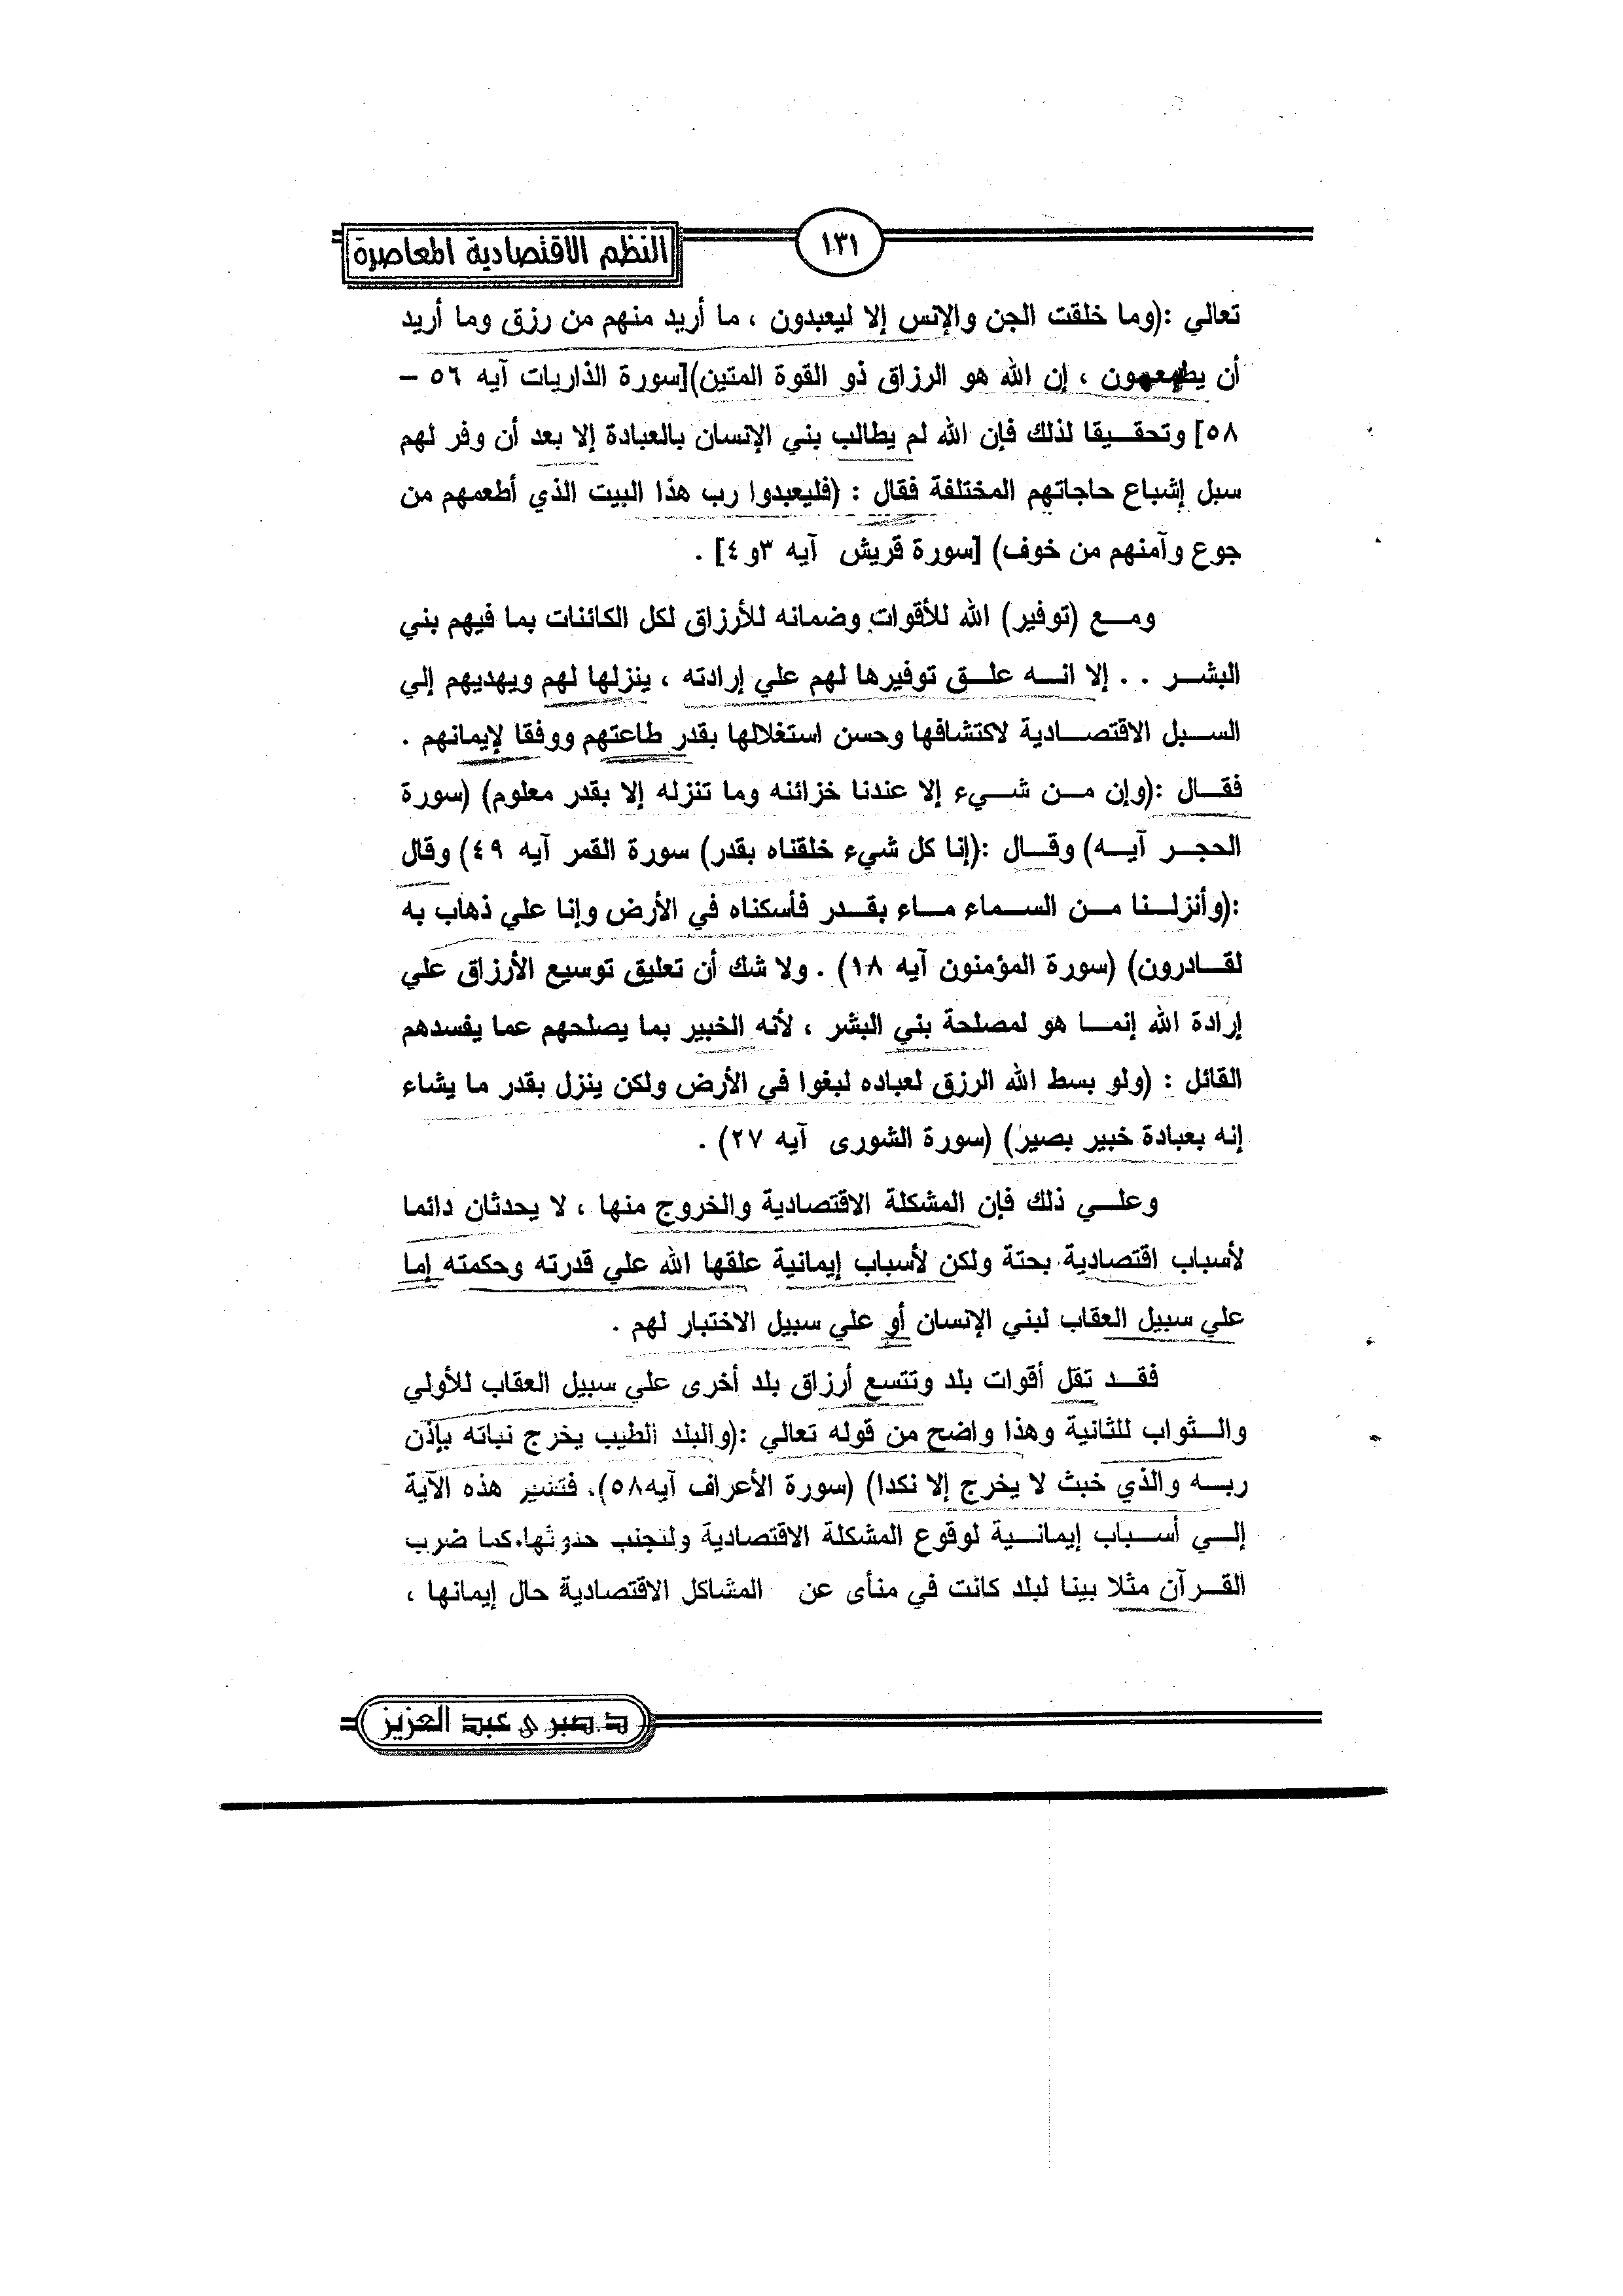 النظم الاقتصادية المعاصرة
١٣١
تعالي :(وما خلقت الجن والإنس إلا ليعبدون ، ما أريد منهم من رزق وما أريد
أن ، إن الله هو الرزاق ذو القوة المتين)[سورة الذاريات آيه ٥٦ –
٥٨] وتحقيقا لذلك فإن الله لم يطالب بني الإنسان بالعبادة إلا بعد أن وفر لهم
سبل إشباع حاجاتهم المختلفة فقال : (فليعبدوا رب هذا البيت الذي أطعمهم من
جوع وآمنهم من خوف) [سورة قريش آيه ٣و٤] .
ومع (توفير) الله للأقوات وضمانه للأرزاق لكل الكائنات بما فيهم بني
البشر . . إلا انه علق توفيرها لهم علي إرادته ، ينزلها لهم ويهديهم إلي
السبل الاقتصادية لاكتشافها وحسن استغلالها بقدر طاعتهم ووفقا لإيمانهم .
فقال :(وإن من شيء إلا عندنا خزائنه وما تنزله إلا بقدر معلوم) (سورة
الحجر آيه) وقال :(إنا كل شيء خلقناه بقدر) سورة القمر آيه ٤٩) وقال
:(وأنزلنا من السماء ماء بقدر فأسكناه في الأرض وإنا علي ذهاب به
لقادرون) (سورة المؤمنون آيه ١٨) . ولا شك أن تعليق توسيع الأرزاق علي
إرادة الله إنما هو لمصلحة بني البشر ، لأنه الخبير بما يصلحهم عما يفسدهم
القائل : (ولو بسط الله الرزق لعباده لبغوا في الأرض ولكن ينزل بقدر ما يشاء
إنه بعبادة خبير بصير) (سورة الشورى آيه ٢٧) .
وعلي ذلك فإن المشكلة الاقتصادية والخروج منها ، لا يحدثان دائما
لأسباب اقتصادية بحتة ولكن لأسباب إيمانية علقها الله علي قدرته وحكمته إما
علي سبيل العقاب لبني الإنسان أو علي سبيل الاختبار لهم .
فقد تقل أقوات بلد وتتسع أرزاق بلد أخرى علي سبيل العقاب للأولي
والثواب للثانية وهذا واضح من قوله تعالي :(والبلد الطيب يخرج نباته بإذن
ربه والذي خبث لا يخرج إلا نكدا) (سورة الأعراف آيه٥٨). فتشير هذه الآية
إلي أسباب إيمانية لوقوع المشكلة الاقتصادية ولتجنب حدوثها.كما ضرب
القرآن مثلا بينا لبلد كانت في منأى عن المشاكل الاقتصادية حال إيمانها ،
د.صبرى عبد العزيز